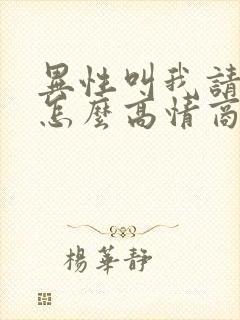 異性叫我請
怎麼高情商
楊華靜